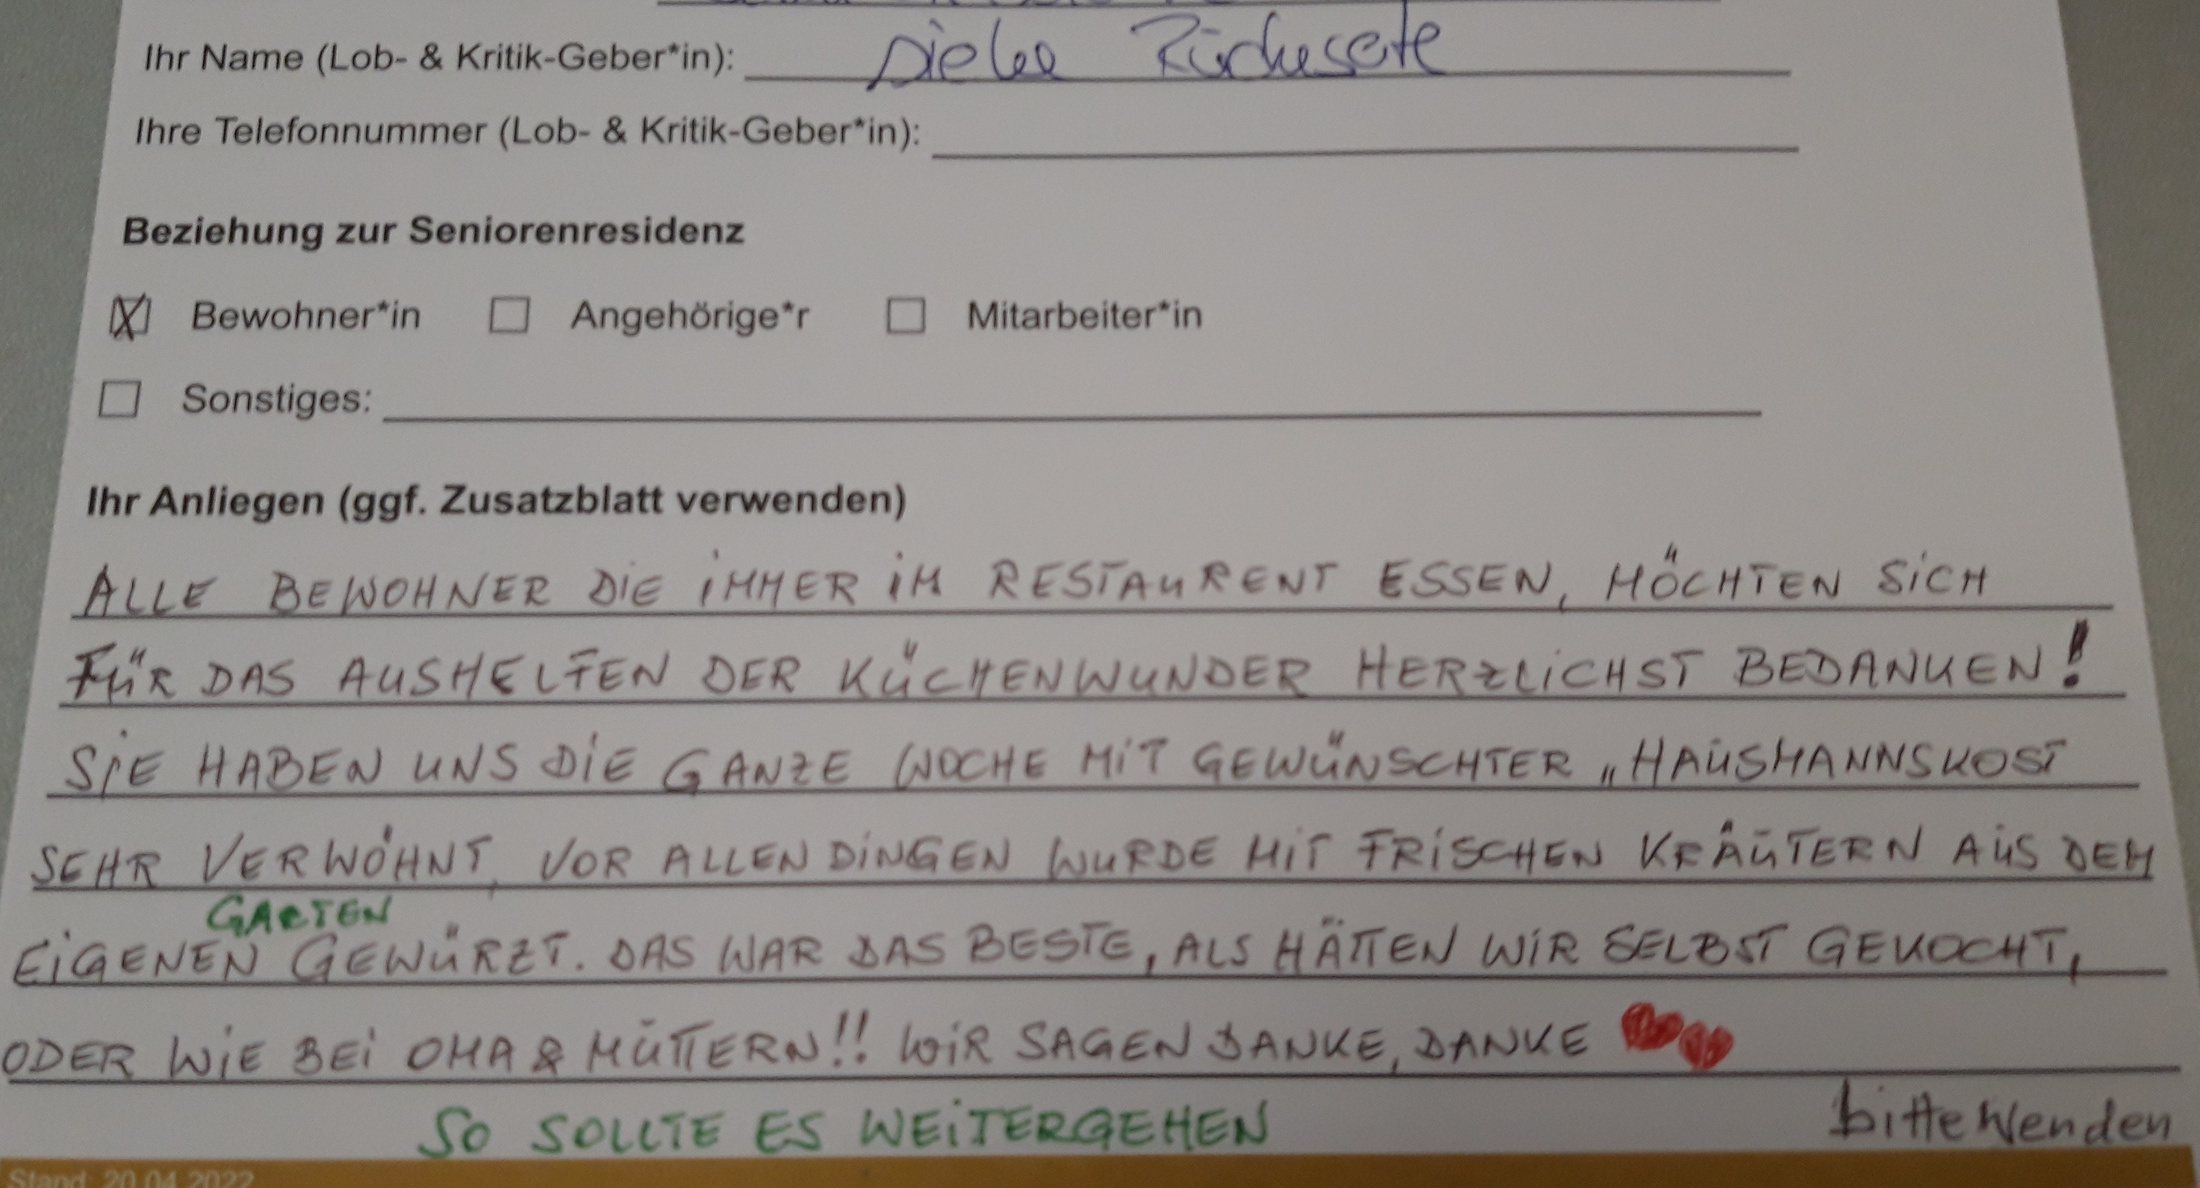 Ihr Name (Lob- & Kritik-Geber*in): Siehe Rückseite
Ihre Telefonnummer (Lob- & Kritik-Geber*in):
Beziehung zur Seniorenresidenz
Bewohner*in Angehörige*r Mitarbeiter*in
Sonstiges:
Ihr Anliegen (ggf. Zusatzblatt verwenden)
ALLE BEWOHNER DIE IMMER IM RESTAURENT ESSEN, MÖCHTEN SICH
FÜR DAS AUSHELFEN DER KÜCHENWUNDER HERZLICHST BEDANKEN!
SIE HABEN UNS DIE GANZE WOCHE MIT GEWÜNSCHTER „HAUSMANNSKOST
SEHR VERWÖHNT, VOR ALLEN DINGEN WURDE MIT FRISCHEN KRÄUTERN AUS DEM
GARTEN
EIGENEN GEWÜRZT. DAS WAR DAS BESTE, ALS HÄTTEN WIR SELBST GEKOCHT,
ODER WIE BEI OMA & MÜTTERN!! WIR SAGEN DANKE, DANKE
SO SOLLTE ES WEITERGEHEN bitte wenden
Stand: 20.04.2022